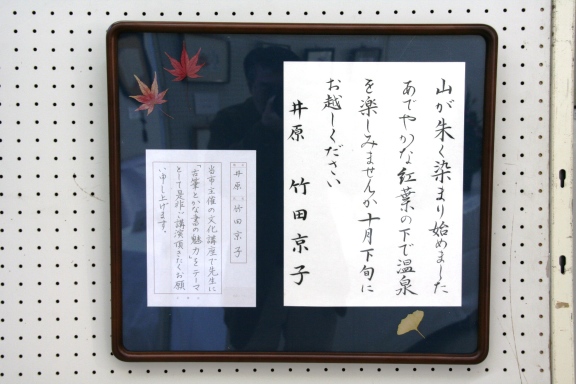 山が朱く染まり始めました
あでやかな紅葉の下で温泉
を楽しみませんか十月下旬に
お越しください
井原 竹田京子
井原 竹田京子
当市主催の文化講座で先生に
「古筆とかな書の魅力」をテーマ
として是非ご講演頂きたくお願
い申し上げます。